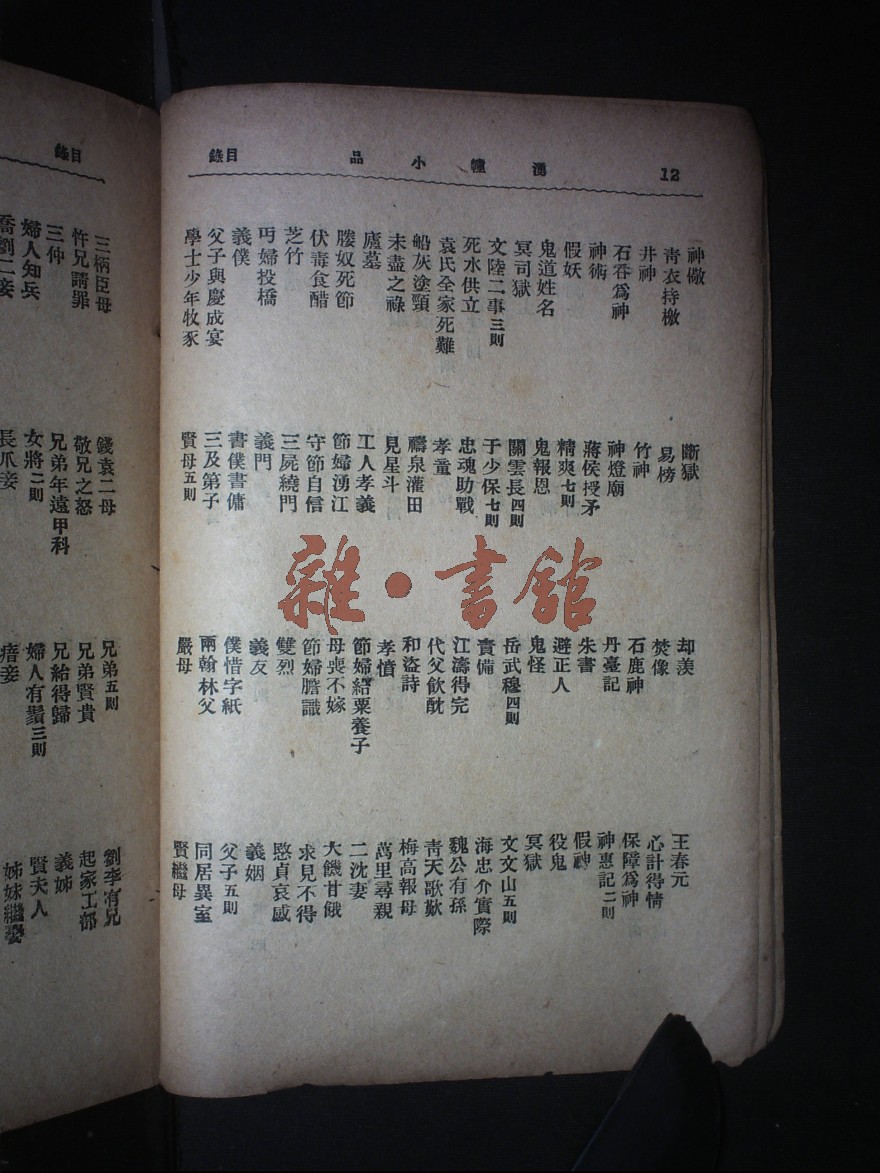 目錄 湧幢小品 12
神儆 斷獄 却羨 王春元
青衣持檄 易榜 焚像 心計得情
井神 竹神 石鹿神 保障爲神
石吞爲神 神燈廟 丹臺記 神惠記二則
神術 蔣侯授矛 朱書 假神
假妖 精爽七則 避正人 役鬼
鬼道姓名 鬼報恩 鬼怪 冥獄
冥司獄 關雲長四則 岳武穆四則 文文山五則
文陸二事三則 于少保七則 責備 海忠介實際
死水供立 忠魂助戰 江濤得完 魏公有孫
袁氏全家死難 孝童 代父飲酖 青天歌歎
船灰塗頸 禱泉灌田 和盜詩 梅高報母
未盡之祿 見星斗 孝憤 萬里尋親
廬墓 工人孝義 節婦粟養子 二沈妻
奴死節 節婦湧江 母喪不嫁 大饑甘餓
伏毒食醋 守節自信 節婦膽識 求見不得
芝竹 三屍繞門 雙烈 愍貞哀感
丐婦投橋 義門 義友 義姻
義僕 書僕書傭 僕惜字紙 父子五則
父子與慶成宴 三及第子 兩翰林父 同居異室
學士少年牧豕 賢母五則 嚴母 賢繼母
目錄
三柄臣母 錢袁二母 兄弟五則 劉李宥兄
忤兄請罪 敬兄之怒 兄弟賢貴 起家工部
三仲 兄弟年遠甲科 兄給得歸 義姊
婦人知兵 女將二則 婦人有鬚三則 賢夫人
喬劉二妾 長爪妾 瘖妾 姊妹繼娶
雜·書館